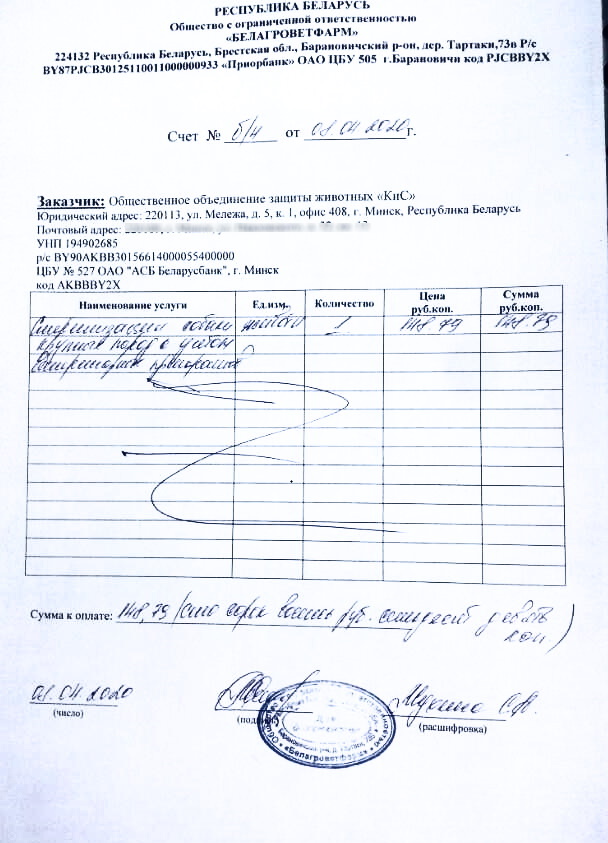 РЕСПУБЛИКА БЕЛАРУСЬ
Общество с ограниченной ответственностью
«БЕЛАГРОВЕТФАРМ»
224132 Республика Беларусь, Брестская обл., Барановичский р-он, дер. Тартаки,73в Р/с
BY87PJCB30125110011000000933 «Приорбанк» ОАО ЦБУ 505 г.Барановичи код PJCBBY2X
Счет № б/н от 08.04 2020г.
Заказчик: Общественное объединение защиты животных «КиС»
Юридический адрес: 220113, ул. Мележа, д. 5, к. 1, офис 408, г. Минск, Республика Беларусь
Почтовый адрес:
УНП 194902685
р/с BY90AKBB30156614000055400000
ЦБУ № 527 ОАО "АСБ Беларусбанк", г. Минск
код AKBBBY2X
Наименование услуги Ед.изм. Количество Цена руб.коп. Сумма руб.коп.
Стерилизация собаки 1 148.79 148.79
крупных пород с учетом
ветеринарных препаратов
Сумма к оплате: 148,79 (сто сорок восемь руб. семьдесят девять
коп)
08.04.2020
(число) (подпись) (расшифровка)
«Белагроветфарм»